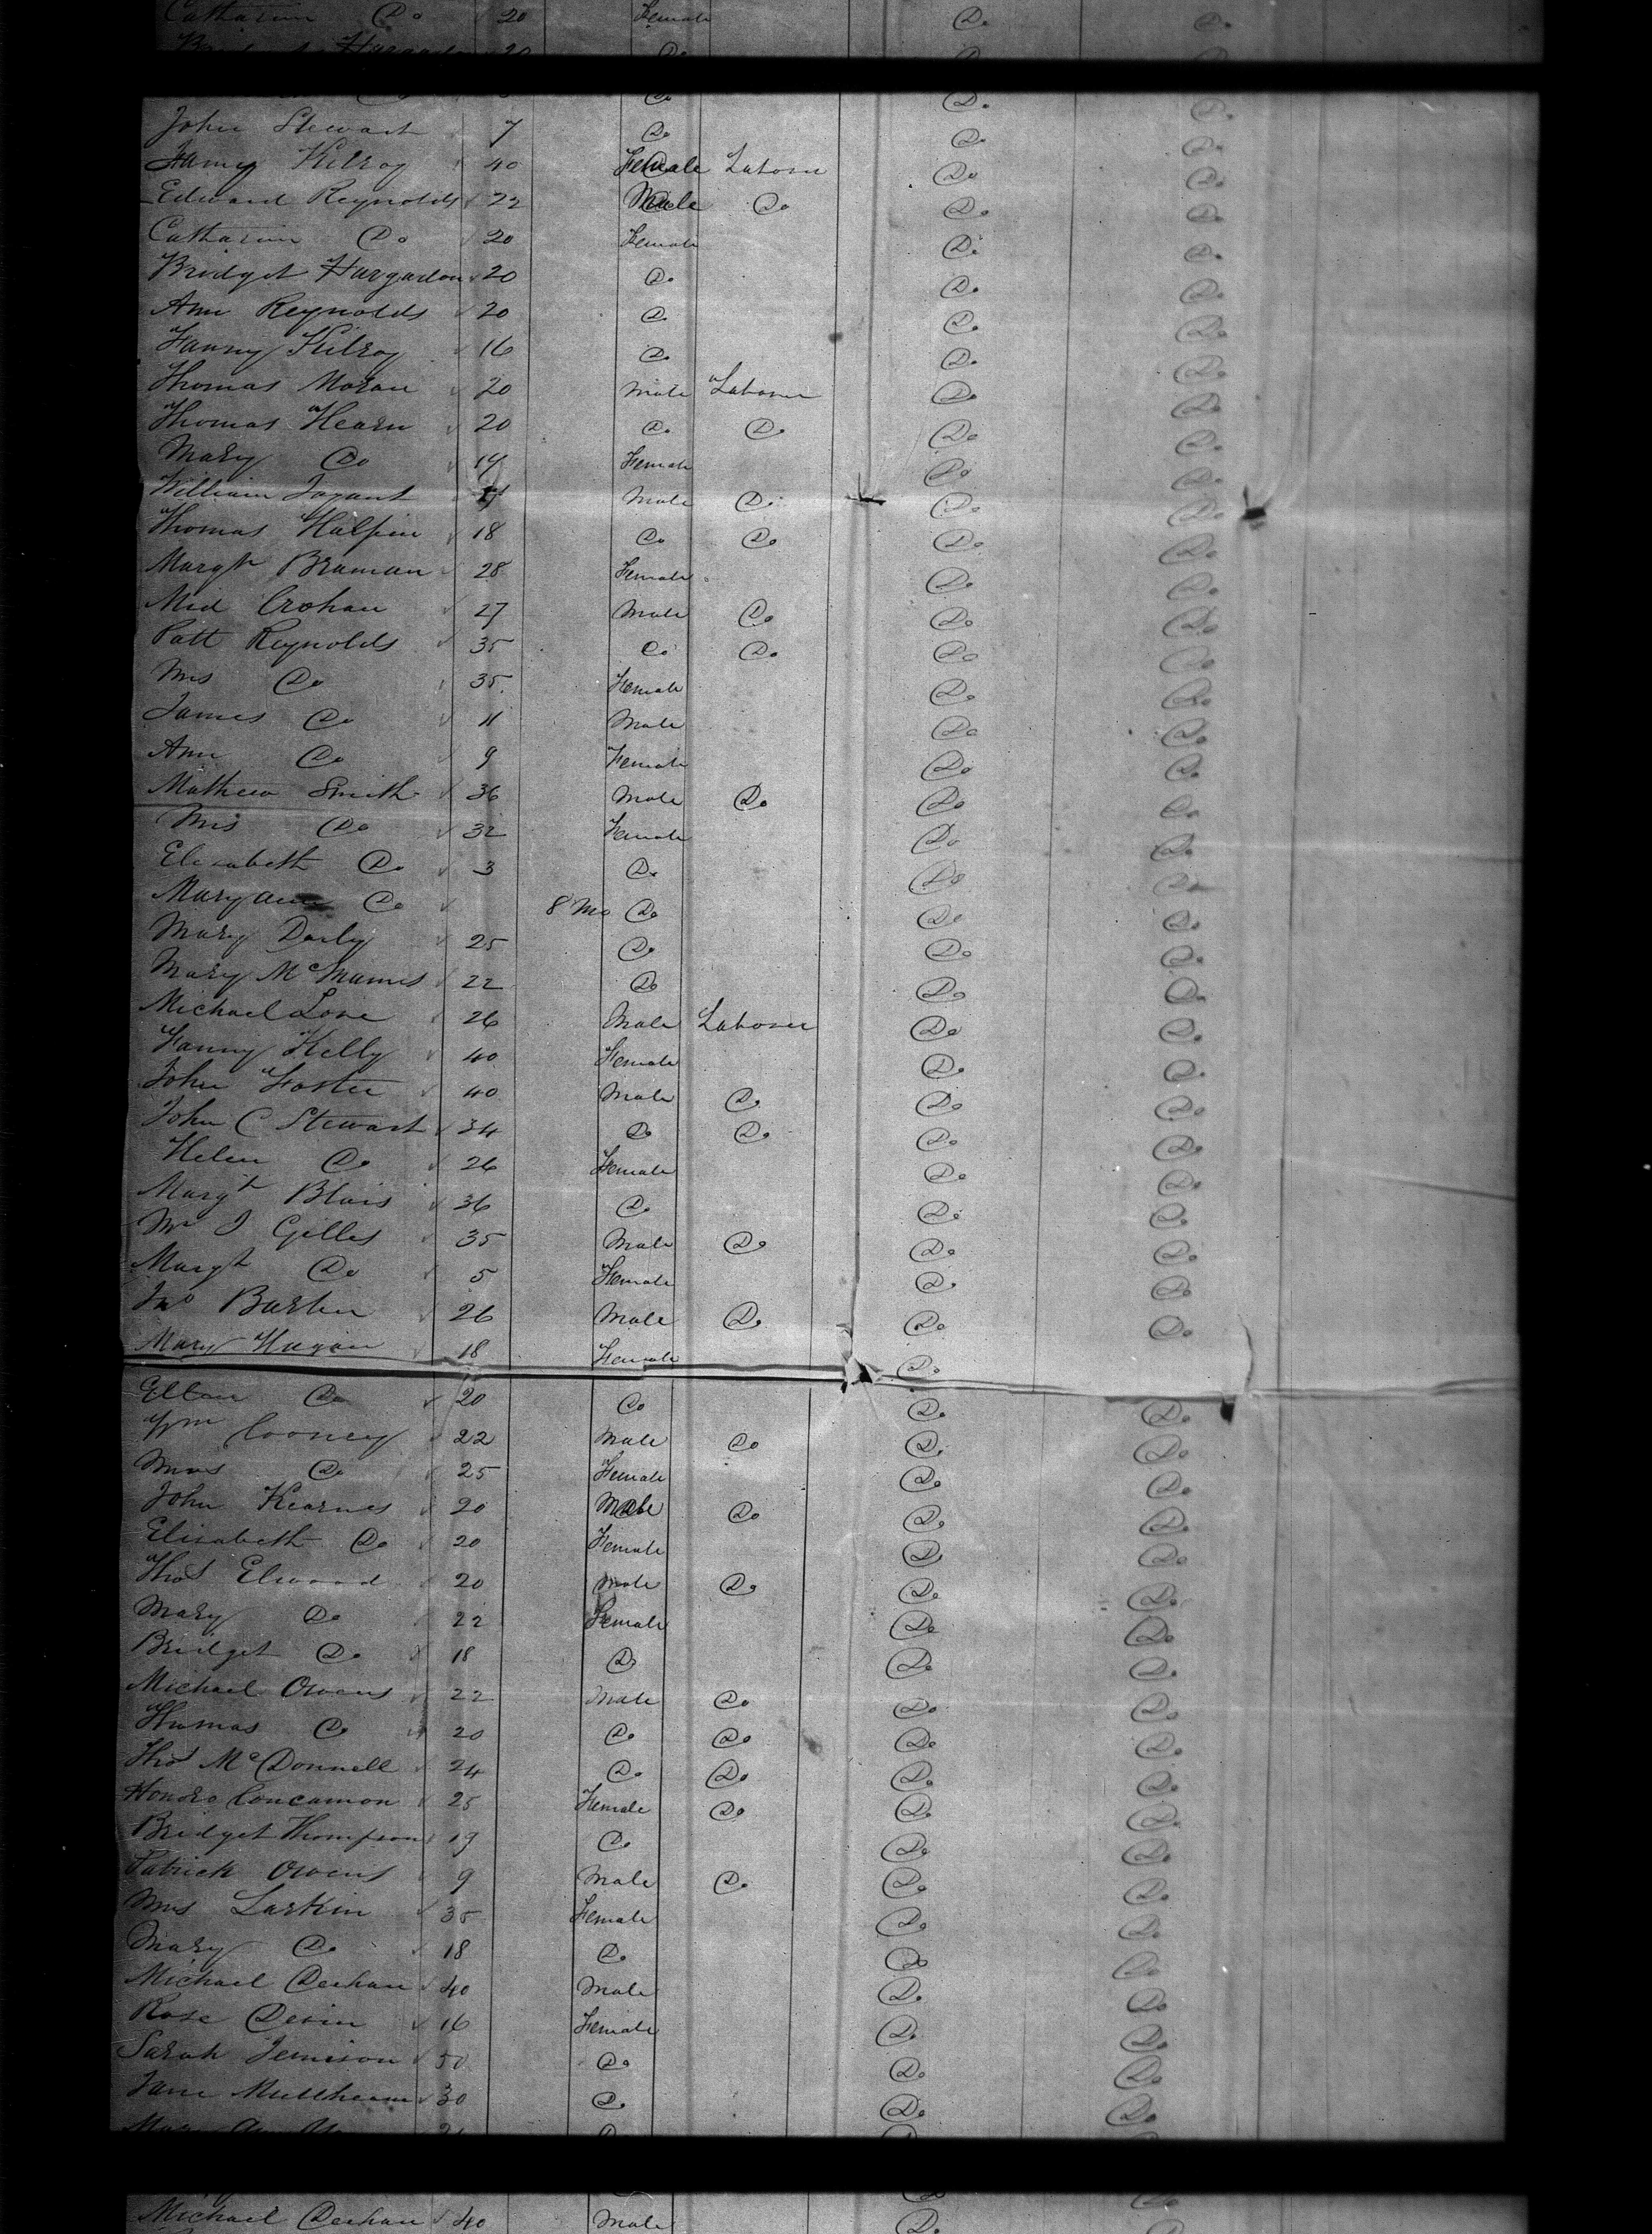 Catharine Do 20 Female Do Do
Bridget Hargadon 20 Do Do Do
Do Do Do Do
John Stewart 7 Do Do Do
Kilroy 40 Female Laborer Do Do
Edward Reynolds 22 Male Do Do Do
Catharine Do 20 Female Do Do
Bridget Hargadon 20 Do Do Do
Ann Reynolds 20 Do Do Do
Fanny Kilroy 16 Do Do Do
Thomas Moran 20 Male Laborer Do Do
Thomas Hearn 20 Do Do Do Do
Mary Do 14 Female Do Do
William Male Do Do Do
Thomas Halpin 18 Do Do Do Do
Margt Braman 28 Female Do Do
Crohan 27 Male Do Do Do
Patt Reynolds 35 Do Do Do Do
Mrs Do 35 Female Do Do
James Do 11 Male Do Do
Ann Do 9 Female Do Do
Mathew Smith 36 Male Do Do Do
Mrs Do 32 Female Do Do
Elizabeth Do 3 Do Do Do
Maryann Do 8 Mo Do Do Do
Mary Darly 25 Do Do Do
Mary McManus 22 Do Do Do
Michael Love 26 Male Laborer Do Do
Fanny Kelly 40 Female Do Do
John Foster 40 Male Do Do Do
John C Stewart 34 Do Do Do Do
Helen Do 26 Female Do Do
Margt Blair 36 Do Do Do
Mr J Gilles 35 Male Do Do Do
Margt Do 5 Female Do Do
Jno 26 Male Do Do Do
Mary Hagan 18 Female Do
Ellen Do 20 Do Do Do
Wm Cooney 22 Male Do Do Do
Mrs Do 25 Female Do Do
John Kearnes 20 Male Do Do Do
Elisabeth Do 20 Female Do Do
Thos Elwood 20 Male Do Do Do
Mary Do 22 Female Do Do
Bridget Do 18 Do Do Do
Michael Owens 22 Male Do Do Do
Thomas Do 20 Do Do Do Do
Thos McDonnell 24 Do Do Do Do
Honora Concannon 25 Female Do Do Do
Bridget Thompson 19 Do Do Do
Patrick Owens 9 Male Do Do Do
Mrs Larkin 35 Female Do Do
Mary Do 18 Do Do Do
Michael Deehan 40 Male Do Do
Rose Devin 16 Female Do Do
Sarah Jemison 50 Do Do Do
Jane 30 Do Do Do
Michael Deehan 40 Male Do Do